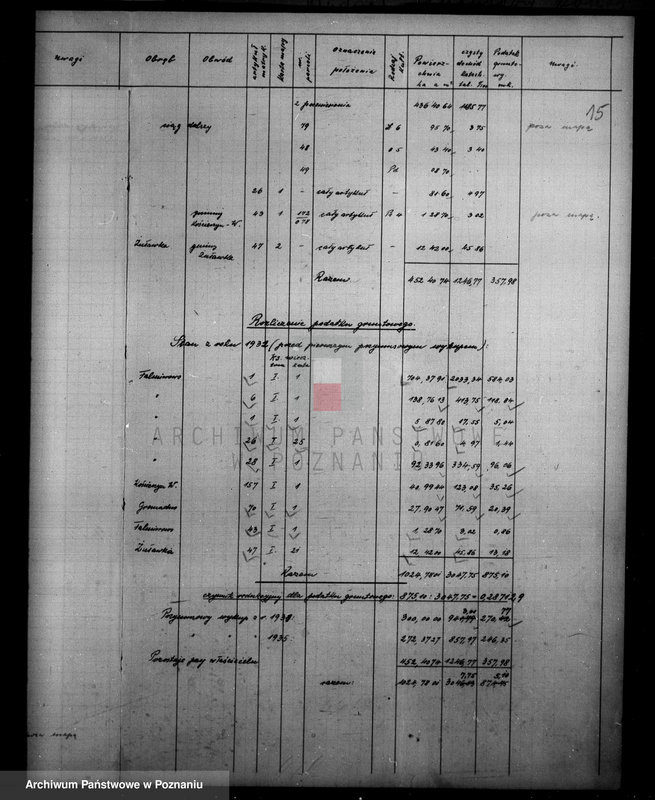 15
Uwagi Obręb Obwód artykuł matryk. karta mapy nr. parceli oznaczenie położenia Rodzaj kult. Powierzchnia ha a m² czysty dochód katastr. tal. Podatek gruntowy mk. Uwagi
z przeniesienia 436 40 64 77
ciąg dalszy 79 6 95 70 3 75 poza mapą
48 05 43 40 3 40
49 Pd 08 70
26 1 - cały artykuł - 81 60 4 97
43 1 cały artykuł B 4 1 28 70 3 02 poza mapą
Żuławka gminy Żuławka 47 2 - cały artykuł - 12 42 00 45 86
Razem 452 40 74 1246,77 357,98
Rozliczenie podatku gruntowego.
Stan z roku 1932 (przed pierwszym przymusowym wykupem):
Falmirowo 1 I 1 704,37 91 2033,34 584,03
" 6 I 1 138,76 13 413,75 118,84
" 1 I 1 5 87 80 17,55 5,04
" 26 I 25 0,81 60 4 97 1.44
" 28 I 1 92,33 96 334,59 96,06
W. 157 I 1 40,99 04 123,08 35,26
Gromadno 70 I 1 27,90 47 71,59 20,39
Falmirowo 43 I 1 1 28 70 3,02 0,86
Żuławka 47 I 21 12,42 00 45,86 13,18
Razem 1024,78 01 3047,75 875,10
czynnik redukcyjny dla podatku gruntowego: 875,10 : 3047,75 = 0,287129
Przymusowy wykup z r. 1932: 300,00 00 270,77
" " " 1935: 272,37 27 857,97 246,35
Pozostaje przy właścicielu 452,40 74 1246,77 357,98
razem: 1024,78 01
poza mapą
ARCHIWUM PAŃSTWOWE
W POZNANIU
Archiwum Państwowe w Poznaniu